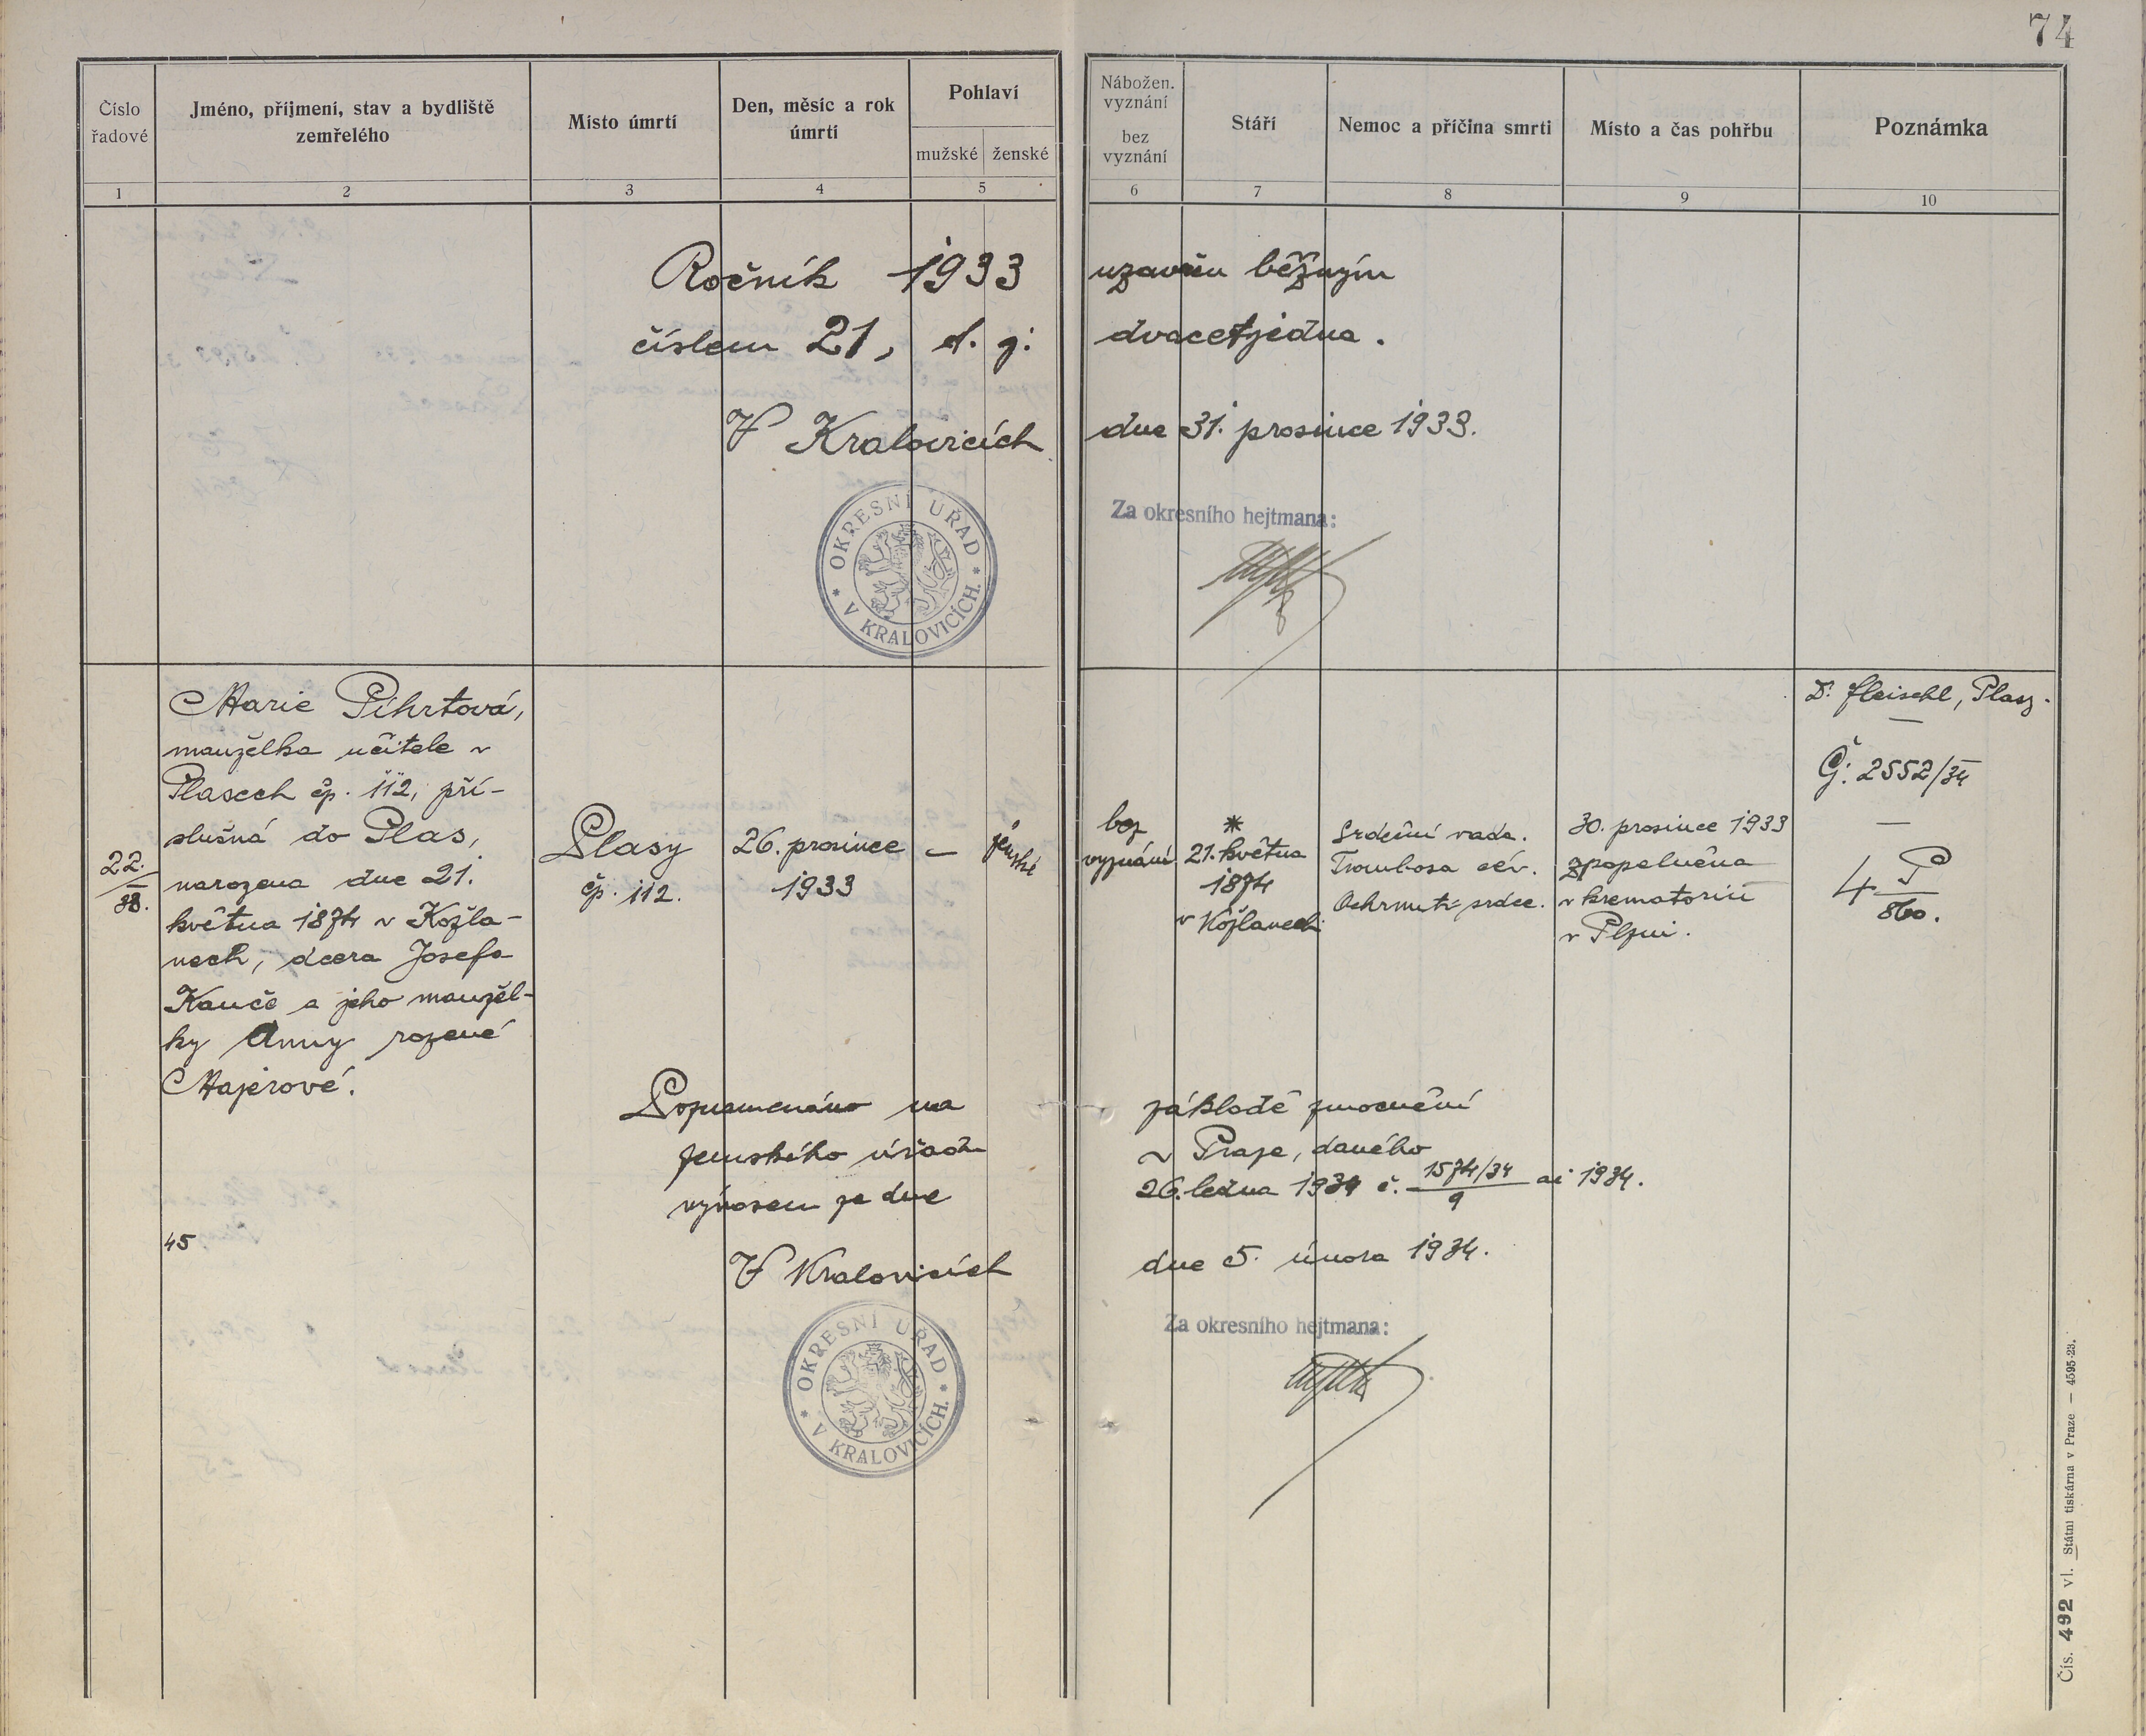 74
Číslo
řadové
Jméno, příjmení, stav a bydliště
zemřelého
Místo úmrtí
Den, měsíc a rok
úmrtí
Pohlaví
mužské ženské
Nábožen.
vyznání
bez
vyznání
Stáří
Nemoc a příčina smrti
Místo a čas pohřbu
Poznámka
1 2 3 4 5 6 7 8 9 10
Ročník 1933 uzavřen běžným
číslem 21, t. j. dvacetjedna.
V Kralovicích dne 31. prosince 1933.
Za okresního hejtmana:
* OKRESNÍ ÚŘAD * V KRALOVICÍCH.
22.
33.
Marie Pihrtová,
manželka učitele v
Plasech čp. 112, pří-
slušná do Plas,
narozena dne 21.
května 1874 v Kožla-
nech, dcera Josefa
Kauče a jeho manžel-
ky Anny rozené
Majerové.
45
Plasy
čp. 112.
26. prosince
1933
—
ženské
bez
vyznání
*
21. května
1874
v Kožlanech
Srdeční vada.
Trombosa cév.
Ochrnutí srdce.
30. prosince 1933
zpopelněna
v krematoriu
v Plzni.
Dr. Fleischl, Plasy.
—
Č: 2552/34
—
4 P
860.
Poznamenáno na základě zmocnění
zemského úřadu v Praze, daného
výnosem ze dne 26. ledna 1934 č. 1574/34 ai 1934.
9
V Kralovicích dne 5. února 1934.
Za okresního hejtmana:
* OKRESNÍ ÚŘAD * V KRALOVICÍCH.
Čís. 492 vl. Státní tiskárna v Praze — 4595-23.